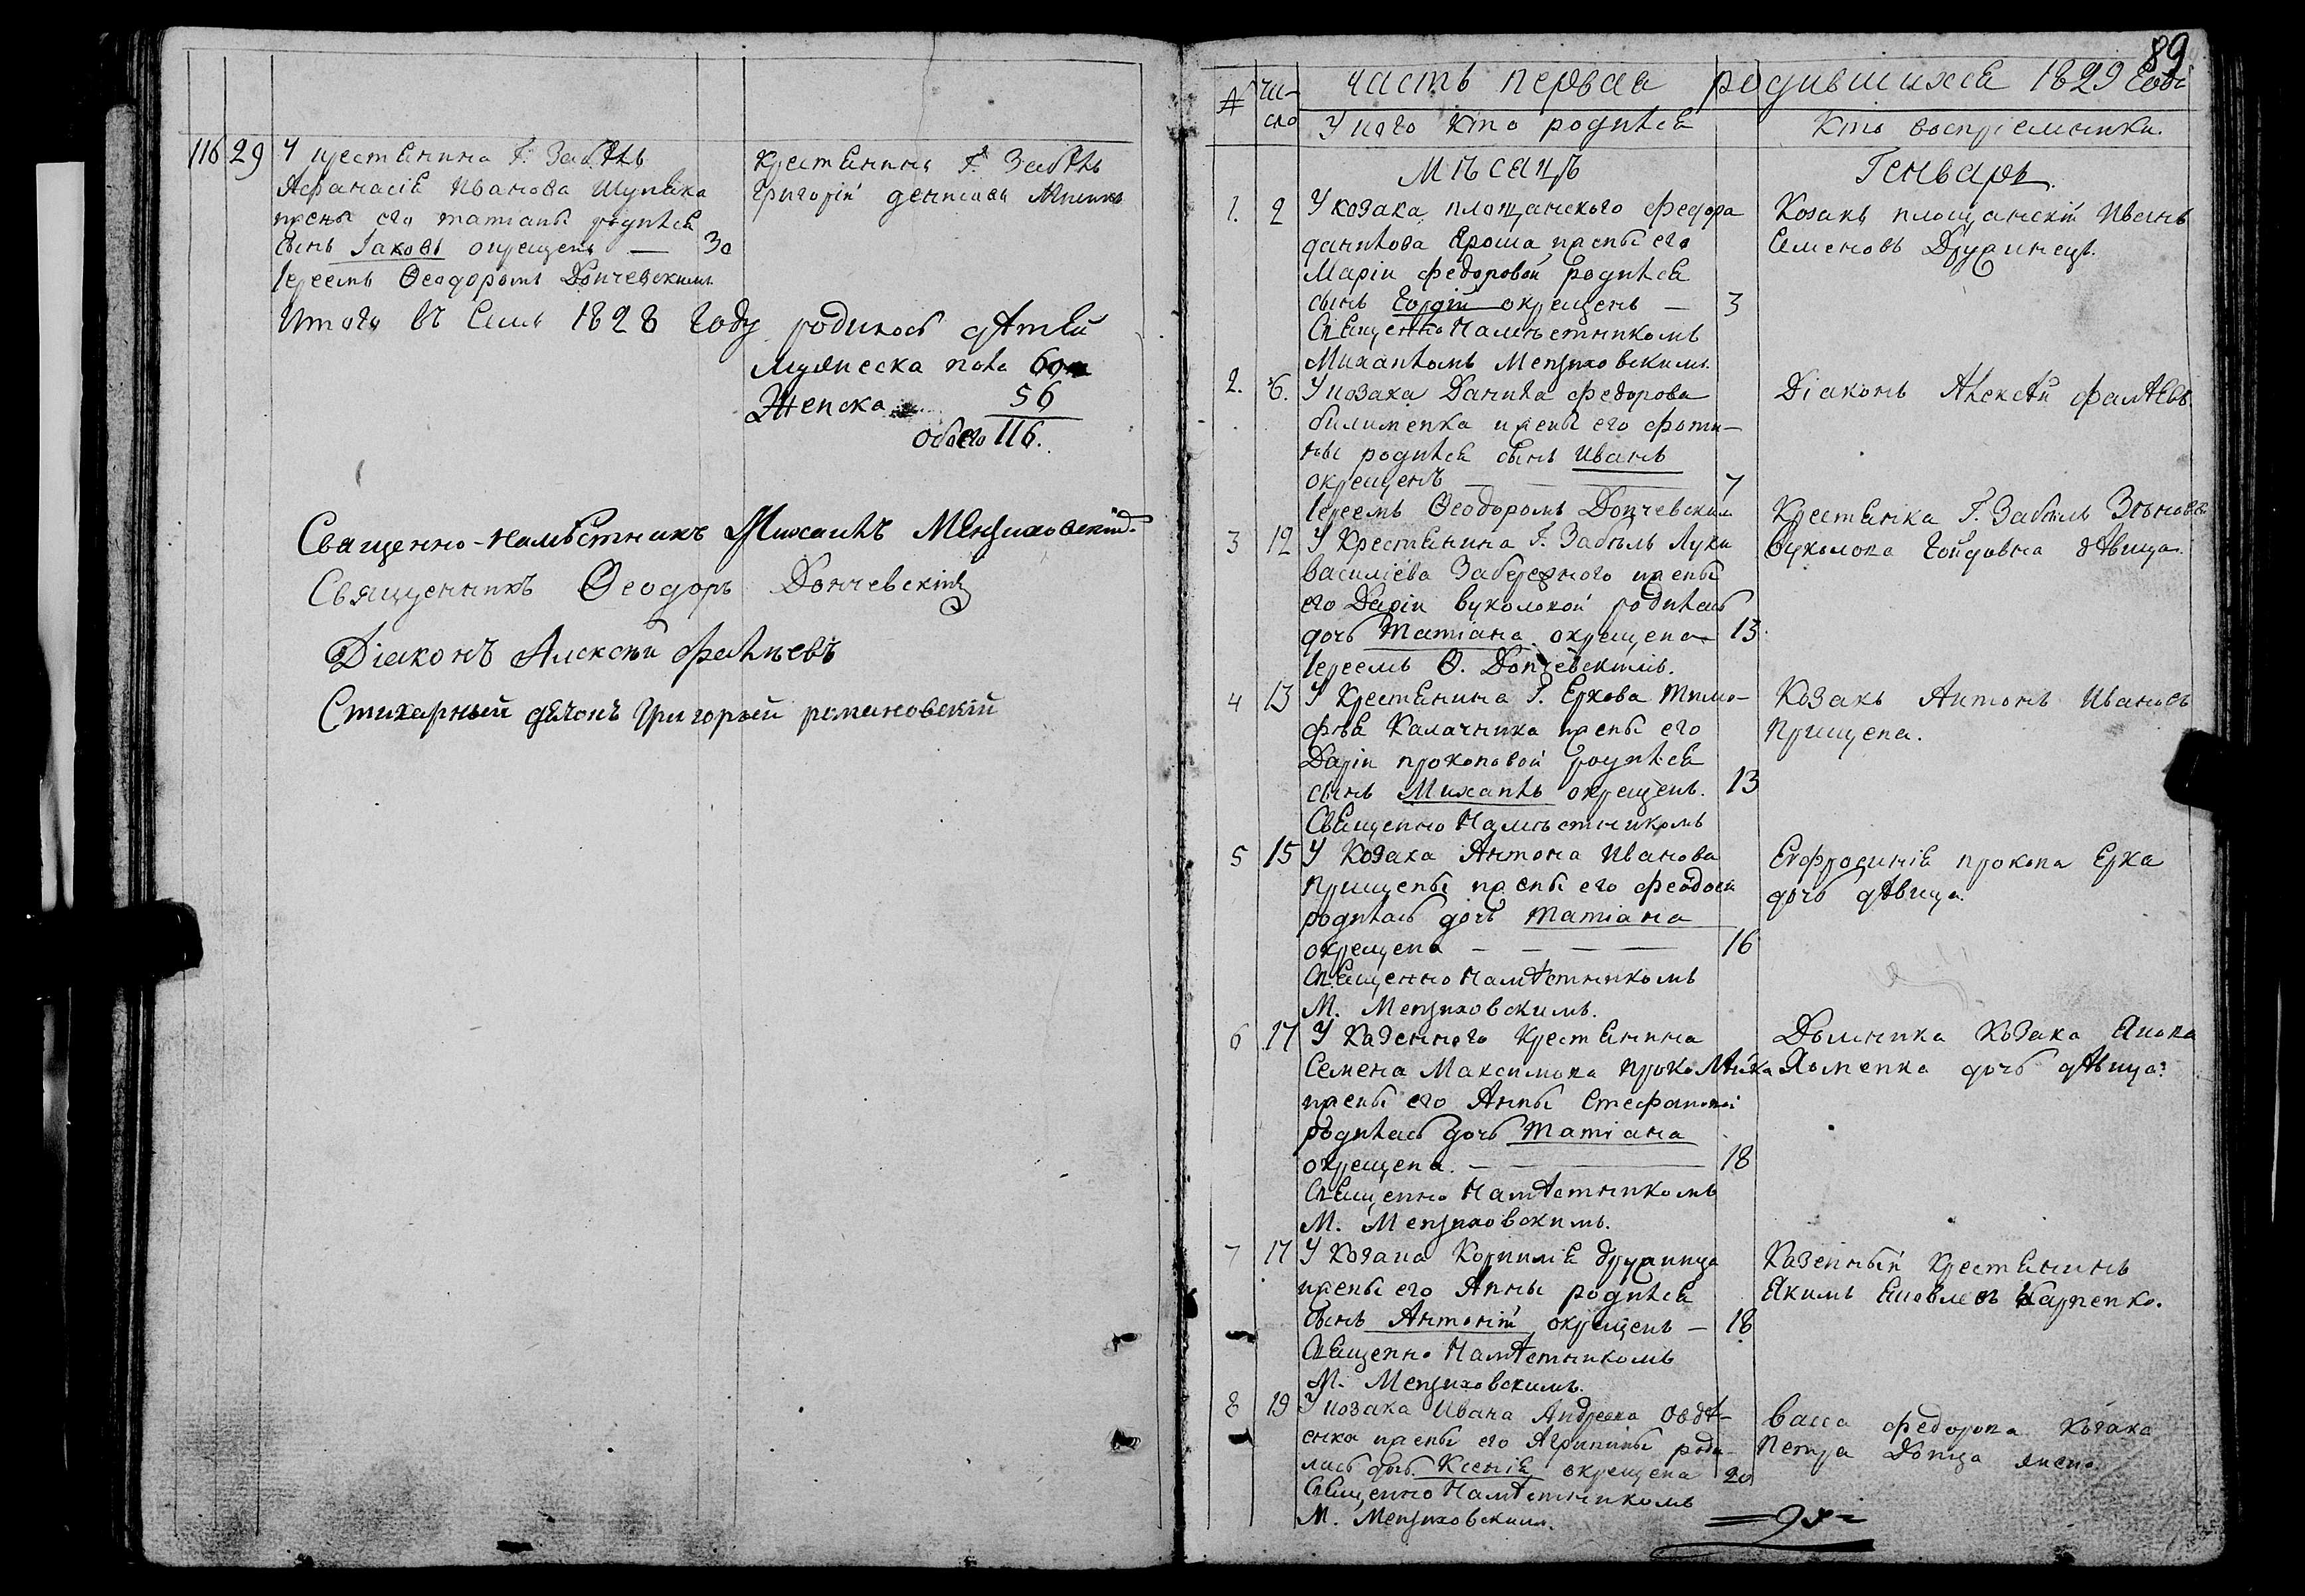 116 29 У крестянина Г. Забѣлъ
Афанасія Иванова Шуляка
жены его татіаны родился
сынъ Іаковъ окрещенъ — 30
Іереемъ Ѳеодоромъ Дончевскимъ
крестянинъ Г. Забѣлъ
Григорій денисовъ
Итого въ семъ 1828 году родилось дѣтей
Мужеска пола 60
Женска 56
Обоего 116.
Священно-намѣстникъ Михаилъ Менжиховскій
Священникъ Ѳеодоръ Дончевскій
Діаконъ Алексѣй Фалѣевъ
Стихарный дячокъ Григорий романовскій
89
№ Чи-сло
часть первая родившихся 1829 Года
У кого кто родился
Кто воспріемники.
Мѣсяцъ Генварь.
1. 2 У козака площанского федора
данилова Ероша жены его
Маріи федоровой родился
сынъ Гордій окрещенъ — 3
Священно Намѣстникомъ
Михаиломъ Менжиховскимъ.
Козакъ площанскій Иванъ
Семеновъ Дружинецъ.
2. 6. У козака Данила федорова
билименка жены его фоти-
ны родился сынъ Иванъ
окрещенъ — 7
Іереемъ Ѳеодоромъ Дончевским
Діаконъ Алексѣй фалѣевъ.
3 12 У Крестянина Г. Забѣлъ Луки
василіева Забережного жены
его Даріи вуколовой родилась
дочь Татіана окрещена 13.
Іереемъ Ѳ. Дончевскимъ.
Крестянка Г. Забѣлъ Зѣновія
Вуколова Гойдовна дѣвица.
4 13 У Крестянина Г. Еркова Тимо-
фѣя Калачника жены его
Даріи прокоповой родился
сынъ Михаилъ окрещенъ. 13
Священно Намѣстникомъ
Козакъ Антонъ Ивановъ
Прищепа.
5 15 У Козака Антона Иванова
Прищепы жены его феодосіи
родилась дочь Татіана
окрещена — — — — 16
Священно Намѣстникомъ
М. Менжиховскимъ.
Евфросинія прокопа Ерка
дочь дѣвица.
6 17 У Казенного Крестянина
Семена Максимова
жены его Анны Стефановой
родилась дочь Татіана
окрещена. — — 18
Священно Намѣстникомъ
М. Менжиховскимъ.
Домника Козака Якова
Хоменка дочь дѣвица.
7 17 У Козака Корнилія дружинца
жены его Анны родился
сынъ Антоній окрещенъ — 18
Священно Намѣстникомъ
М. Менжиховскимъ.
Казенный Крестянинъ
Якимъ Яковлевъ Карпенко.
8 19 У козака Ивана Андреева Овдѣ-
енка жены его Агрипины роди-
лась дочь Ксенія окрещена 20
Священно Намѣстникомъ
М. Менжиховскимъ.
Васса федорова Козака
Петра Донца жена